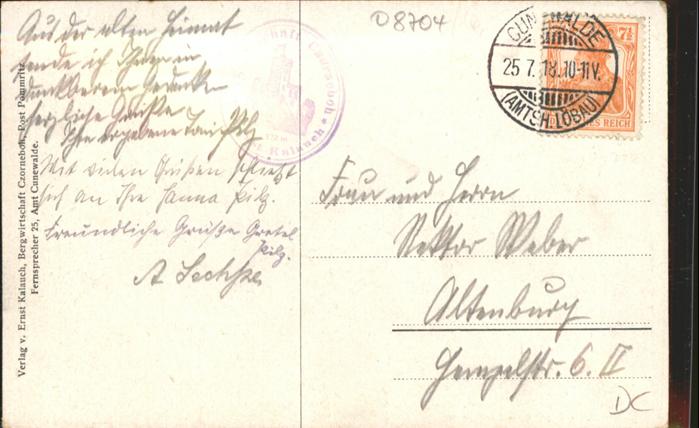 D8704
Aus der alten Heimat
sende ich Ihnen in
dankbarem Gedenken
herzliche Grüße
Ihre ergebene Pilz
Mit vielen Grüßen schließt
sich an Ihre Hanna Pilz.
Freundliche Grüße Gretel
Pilz.
CUNEWALDE
25 7. 18. 10-11V.
(AMTSH. LÖBAU)
7½
ES REICH
Kalauch
Frau und Herrn
Rektor Weber
Altenburg
Hempelstr. 6. II
DC
Verlag v. Ernst Kalauch, Bergwirtschaft Czorneboh, Post Pommritz
Fernsprecher 25, Amt Cunewalde.